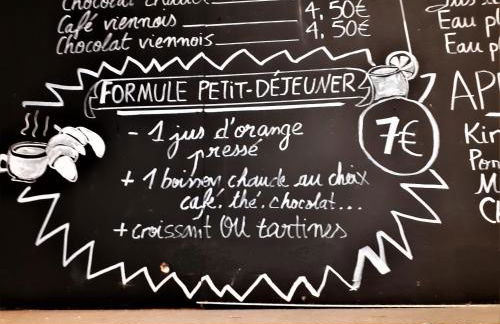 Chocolat chaud
Café viennois 4,50€
Chocolat viennois 4,50€
FORMULE PETIT-DÉJEUNER
7€
- 1 jus d'orange
pressé
+ 1 boisson chaude au choix
café. thé. chocolat...
+ croissant OU tartines
Eau p
Eau p
AP
Kir